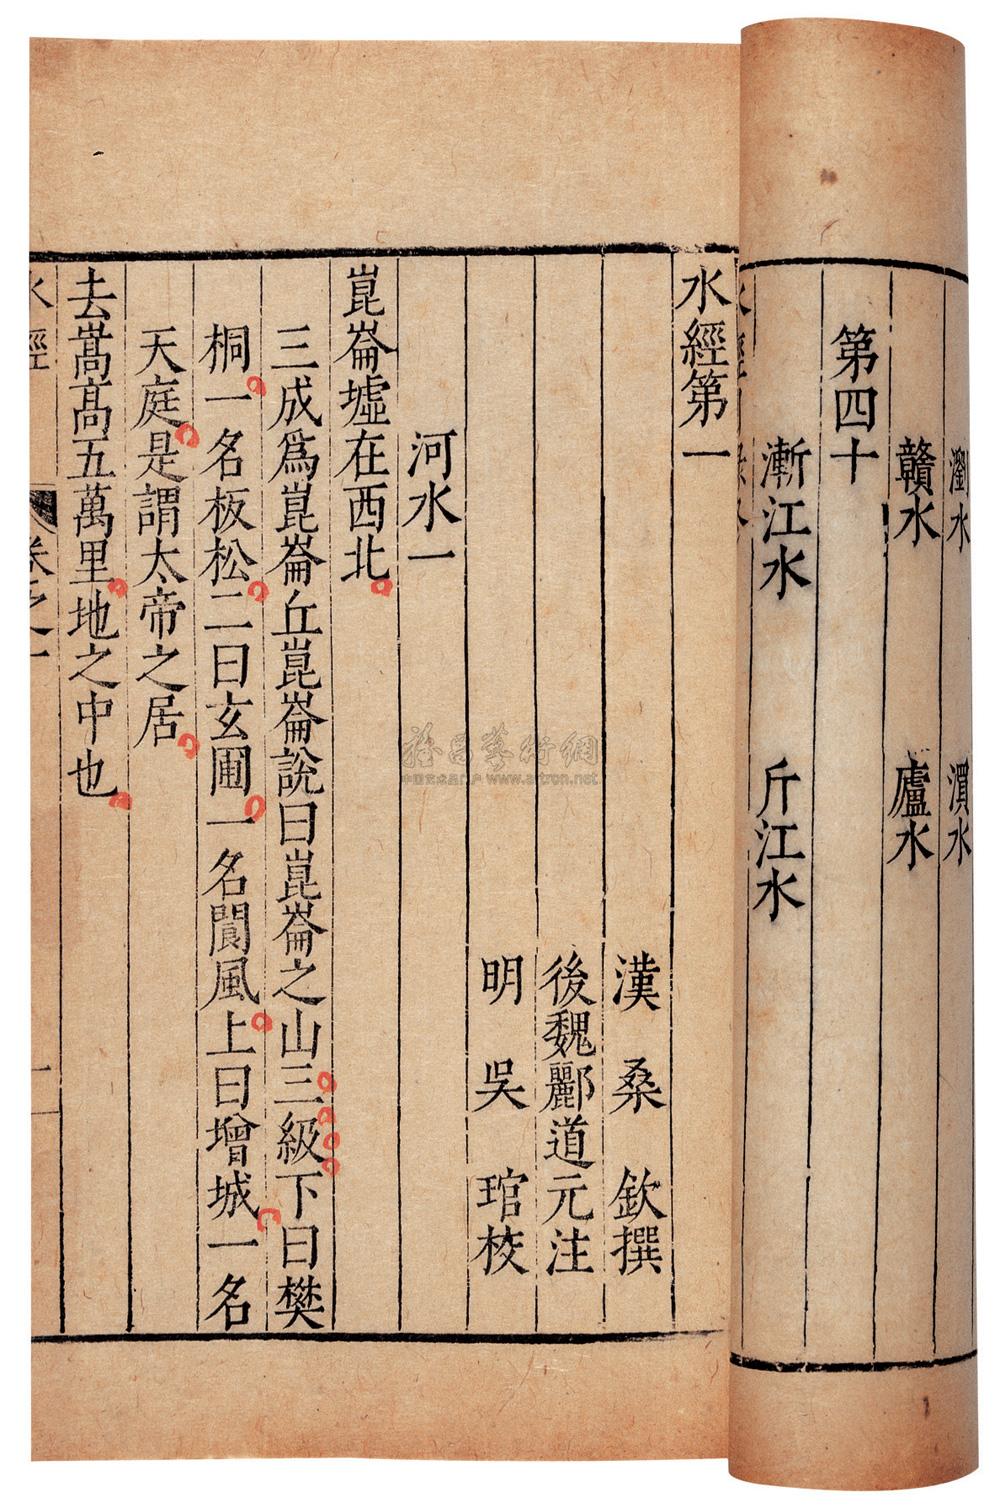 瀏水 溳水
贛水 廬水
第四十
漸江水 斤江水
水經第一
漢 桑 欽撰
後魏酈道元注
明 吳 琯校
河水一
崑崙墟在西北
三成爲崑崙丘崑崙說曰崑崙之山三級下曰樊
桐一名板松二曰玄圃一名閬風上曰增城一名
天庭是謂太帝之居
去嵩高五萬里地之中也
水經 卷之一 一
www.artron.net